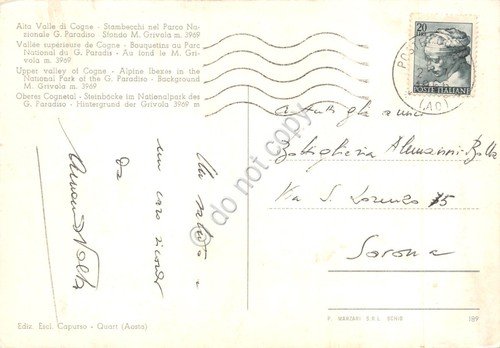 Alta Valle di Cogne - Stambecchi nel Parco Na-
zionale G. Paradiso Sfondo M. Grivola m. 3969
Vallée supérieure de Cogne - Bouquetins au Parc
National du G. Paradis - Au fond le M. Gri-
vola m. 3969
Upper valley of Cogne - Alpine Ibexes in the
National Park of the G. Paradiso - Background
M. Grivola m. 3969
Oberes Cognetal - Steinböcke im Nationalpark des
G. Paradiso - Hintergrund der Grivola 3969 m
20
POSTE ITALIANE
(AO)
Un saluto e
un caro ricordo
da
Bottiglieria
Via S. Lorenzo 75
Savona
do not copy
Ediz. Escl. Capurso - Quart (Aosta)
F. MARZARI S.R.L. SCHIO
189